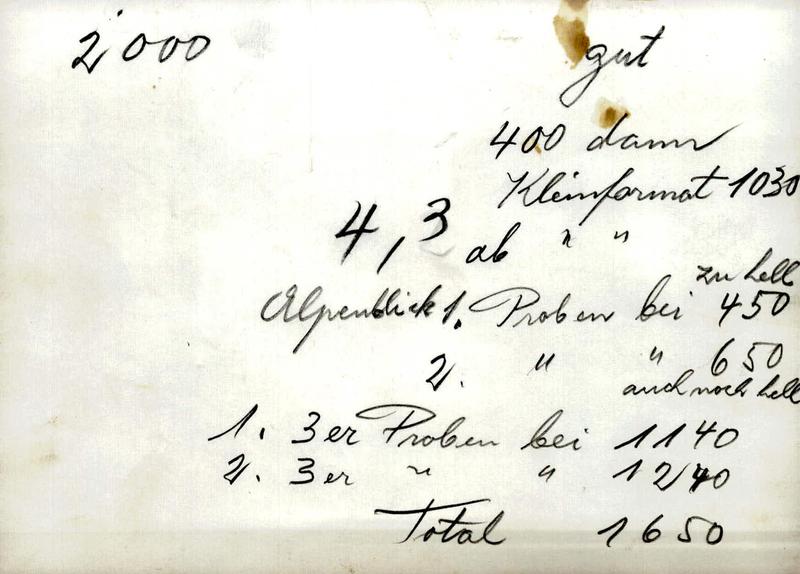 2'000 gut
400 dann
Kleinformat 1030
4,3 ab " "
zu hell
Alpenblick 1. Proben bei 450
2. " " 650
auch noch hell
1. 3er Proben bei 1140
2. 3er " " 1240
Total 1650